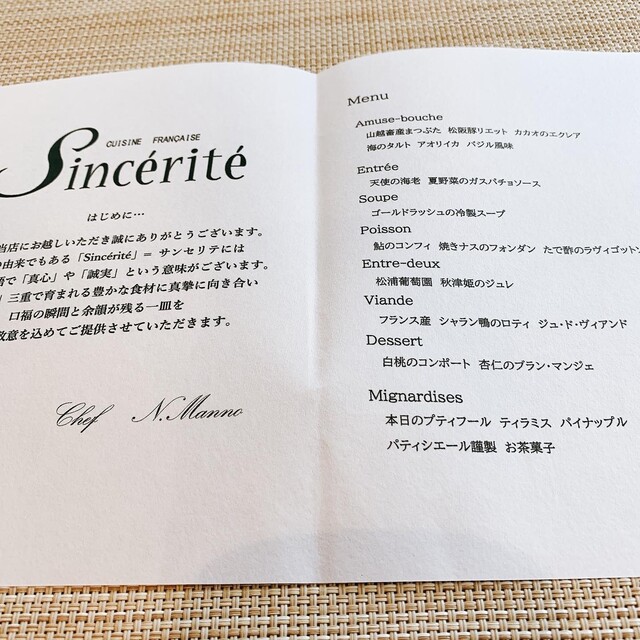 CUISINE FRANÇAISE
Sincérité
はじめに…
当店にお越しいただき誠にありがとうございます。
由来でもある「Sincérité」= サンセリテには
で「真心」や「誠実」という意味がございます。
三重で育まれる豊かな食材に真摯に向き合い
口福の瞬間と余韻が残る一皿を
敬意を込めてご提供させていただきます。
Chef N.Manno
Menu
Amuse-bouche
山越畜産まつぶた 松阪豚リエット カカオのエクレア
海のタルト アオリイカ バジル風味
Entrée
天使の海老 夏野菜のガスパチョソース
Soupe
ゴールドラッシュの冷製スープ
Poisson
鮎のコンフィ 焼きナスのフォンダン たで酢のラヴィゴットソ
Entre-deux
松浦葡萄園 秋津姫のジュレ
Viande
フランス産 シャラン鴨のロティ ジュ・ド・ヴィアンド
Dessert
白桃のコンポート 杏仁のブラン・マンジェ
Mignardises
本日のプティフール ティラミス パイナップル
パティシエール謹製 お茶菓子